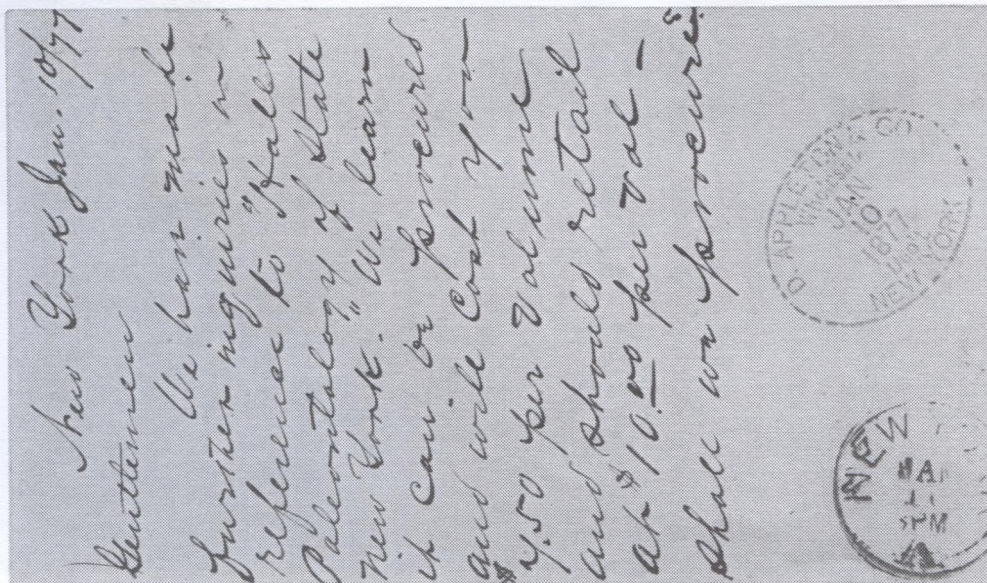 New York Jan. 10/77
Gentlemen
We have made
further inquiries in
reference to "Halls
Paleontology of State
New York." We learn
it can be procured
and will cost you
$7.50 per volume
and should retail
at $10.00 per vol -
shall we procure?
D. APPLETON & CO
JAN
10
1877
NEW YORK
NEW
JAN
11
5 PM